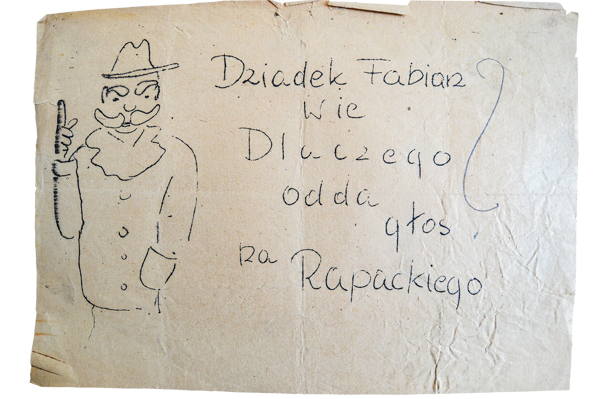 Dziadek Fabiarz ?
wie
Dlaczego
odda
głos
za Rapackiego